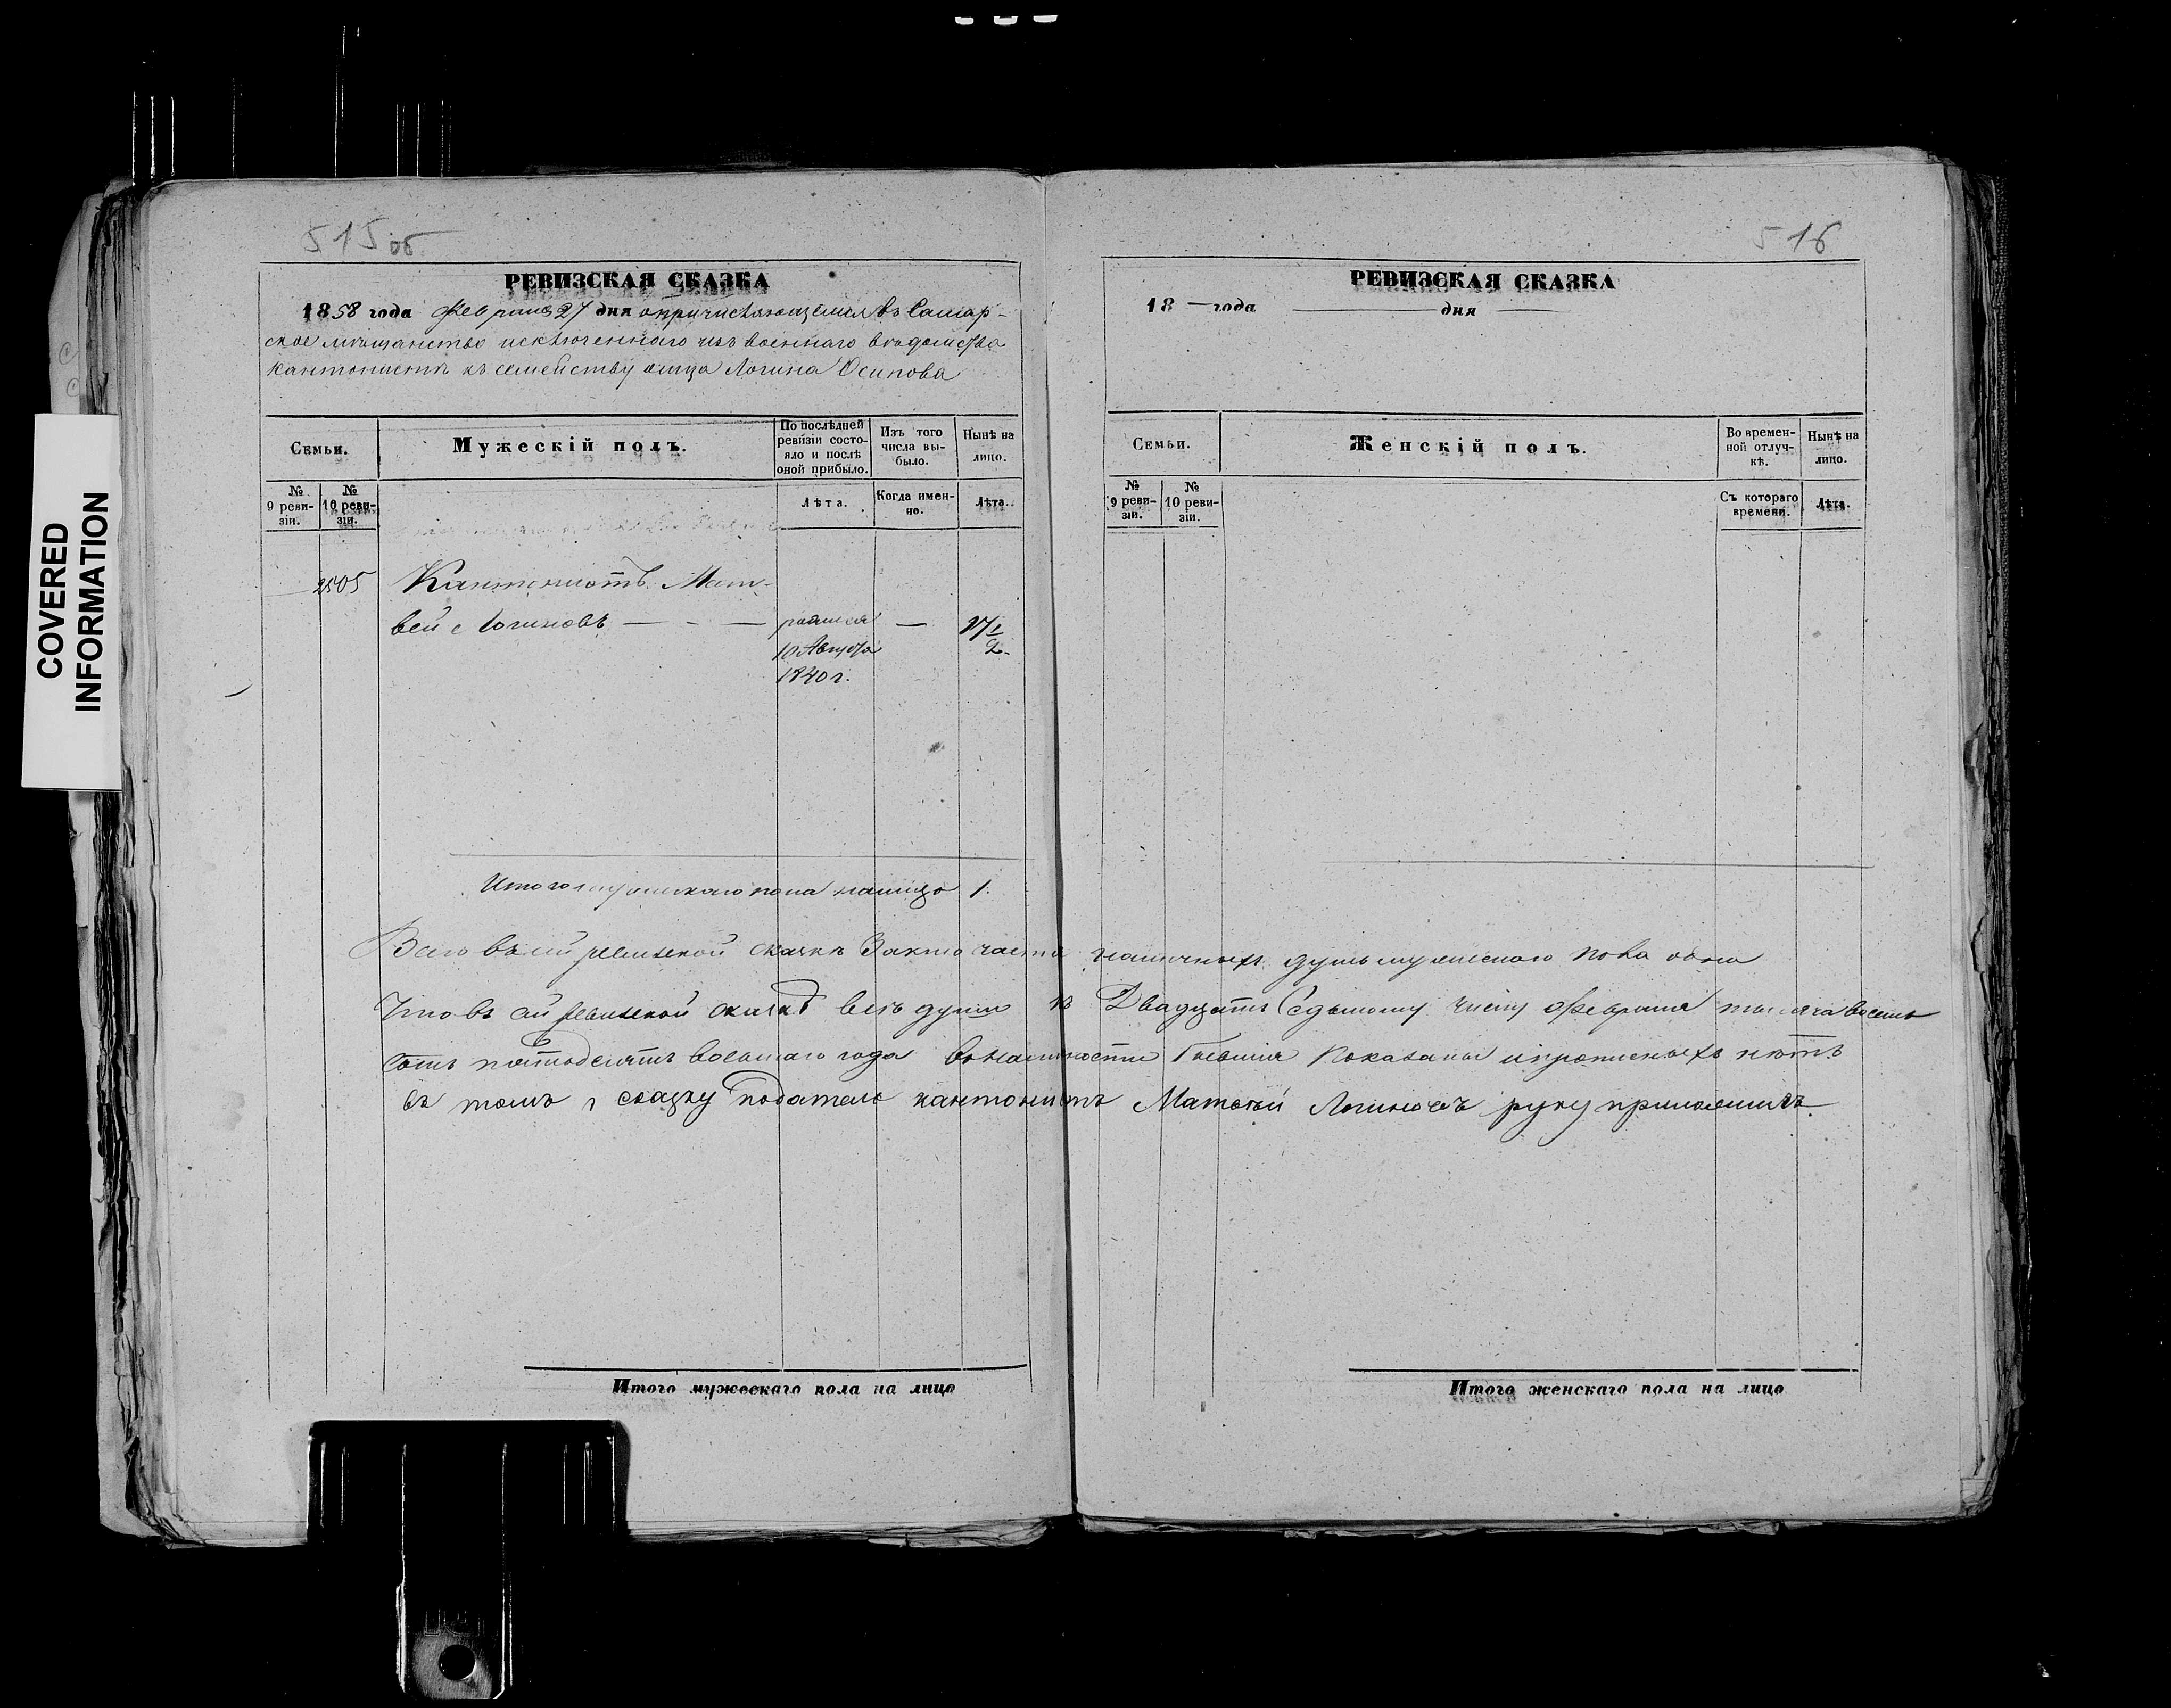 COVERED
INFORMATION
515 об
РЕВИЗСКАЯ СКАЗКА
1858 года Февраля 27 дня о причисляющемся въ Самар-
ское мѣщанство исключеннаго изъ военнаго вѣдомства
кантонистъ къ семейству отца Логина Осипова
Семьи.
Мужескій полъ.
По послѣдней ревизіи состо-яло и послѣ оной прибыло.
Изъ того числа вы-было.
Нынѣ на лицо.
№ 9 реви-зіи.
№ 10 реви-зіи.
Лѣта.
Когда имен-но.
Лѣта.
2505 Кантонистъ Мат-
вей Логиновъ — родился — 17 1/2
10 Августа
1840 г.
Итого мужескаго пола налицо 1.
Итого мужескаго пола на лицо
516
РЕВИЗСКАЯ СКАЗКА
18 — года — дня —
Семьи.
Женскій полъ.
Во времен-ной отлуч-кѣ.
Нынѣ на лицо.
№ 9 реви-зіи.
№ 10 реви-зіи.
Съ котораго времени.
Лѣта.
Всего въ сей ревизской сказкѣ наличныхъ душъ мужескаго пола одна
Что въ сей ревизской сказкѣ всѣ души къ Двадцать Седьмому числу Февраля тысяча восемь
сотъ пятьдесятъ восьмаго года показаны и прописныхъ нѣтъ
въ томъ сказку податель кантонистъ Матвей Логиновъ руку приложилъ.
Итого женскаго пола на лицо